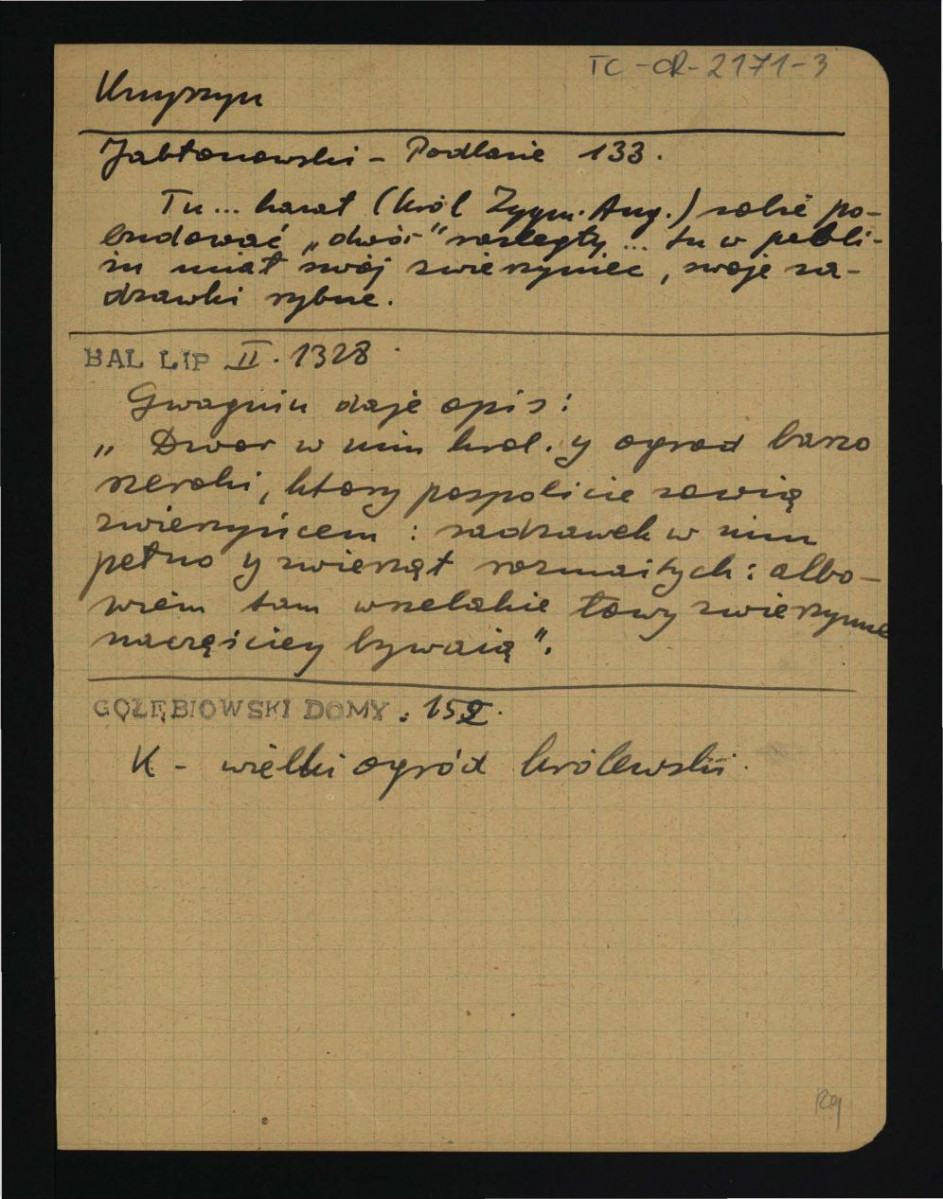 TC-CR-2171-3
Knyszyn
Jabłonowski - Podlasie 133.
Tu... kazał (król Zygm. Aug.) sobie po-
budować „dwór" rozległy... tu w pobli-
żu miał swój zwierzyniec, swoje sa-
dzawki rybne.
BAL LIP II. 1328
Gwagnin daje opis:
„Dwor w nim krol. y ogrod barzo
szeroki, ktory pospolicie zowią
zwierzyńcem: sadzawek w nim
pełno y zwierząt rozmaitych: albo-
wiem tam wszelakie łowy zwierzynne
naczęściey bywaią".
GOŁĘBIOWSKI DOMY. 152.
K - wielki ogród królewski.